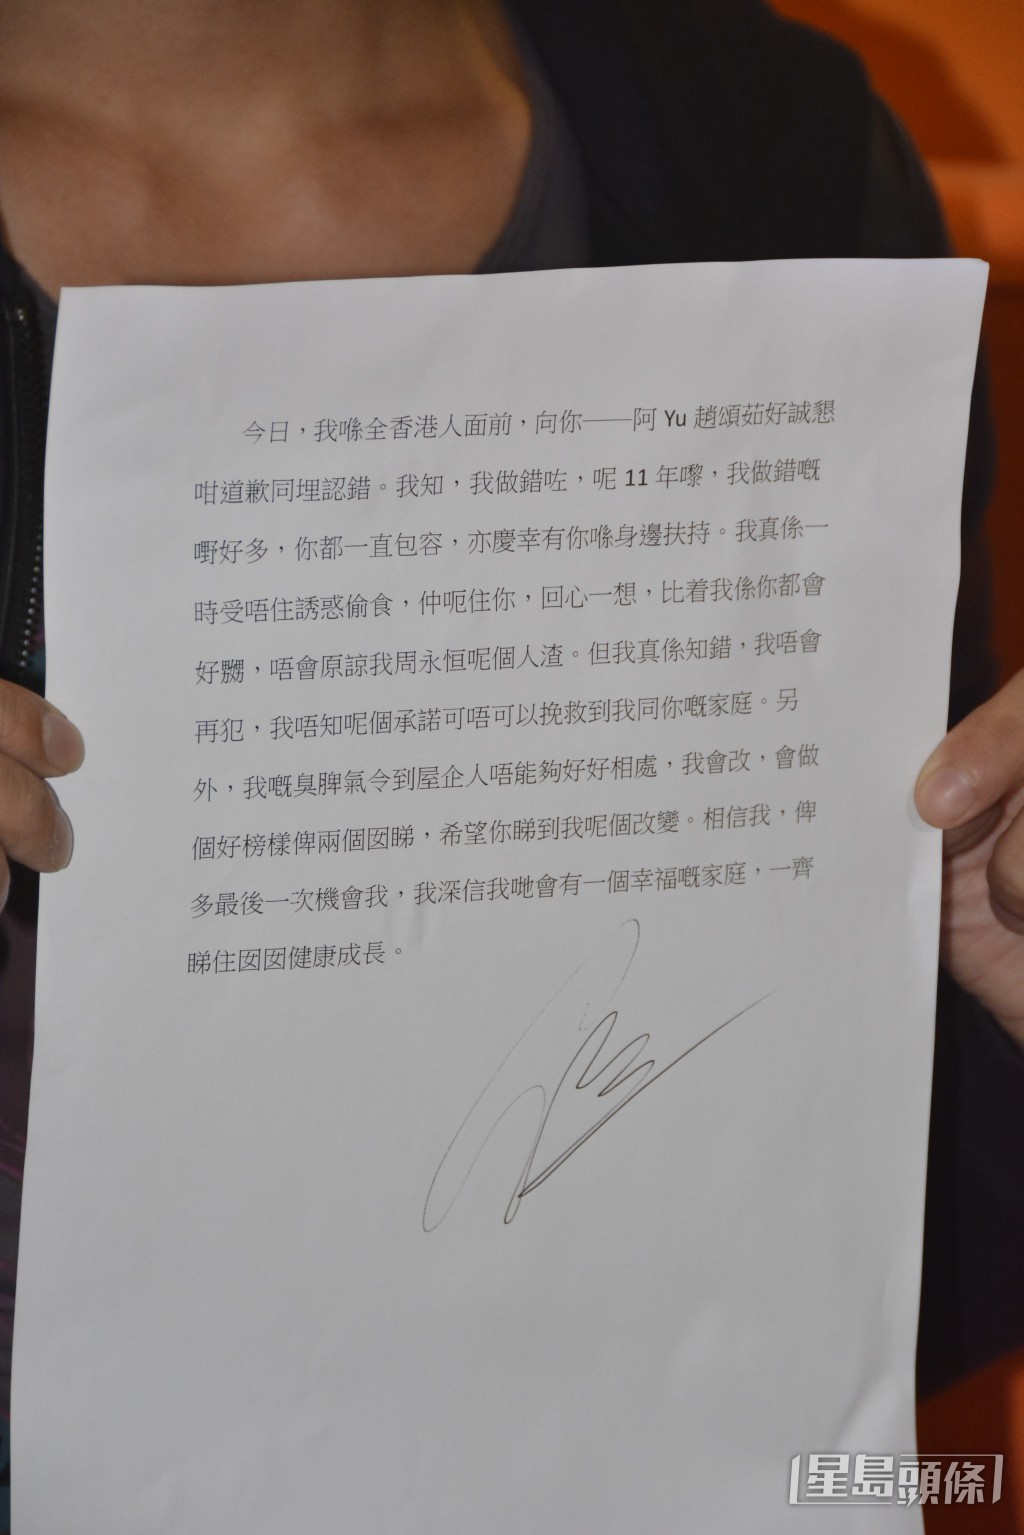 今日，我喺全香港人面前，向你——阿 Yu 趙頌茹好誠懇
咁道歉同埋認錯。我知，我做錯咗，呢 11 年嚟，我做錯嘅
嘢好多，你都一直包容，亦慶幸有你喺身邊扶持。我真係一
時受唔住誘惑偷食，仲呃住你，回心一想，比着我係你都會
好嬲，唔會原諒我周永恒呢個人渣。但我真係知錯，我唔會
再犯，我唔知呢個承諾可唔可以挽救到我同你嘅家庭。另
外，我嘅臭脾氣令到屋企人唔能夠好好相處，我會改，會做
個好榜樣俾兩個囡睇，希望你睇到我呢個改變。相信我，俾
多最後一次機會我，我深信我哋會有一個幸福嘅家庭，一齊
睇住囡囡健康成長。
星島頭條